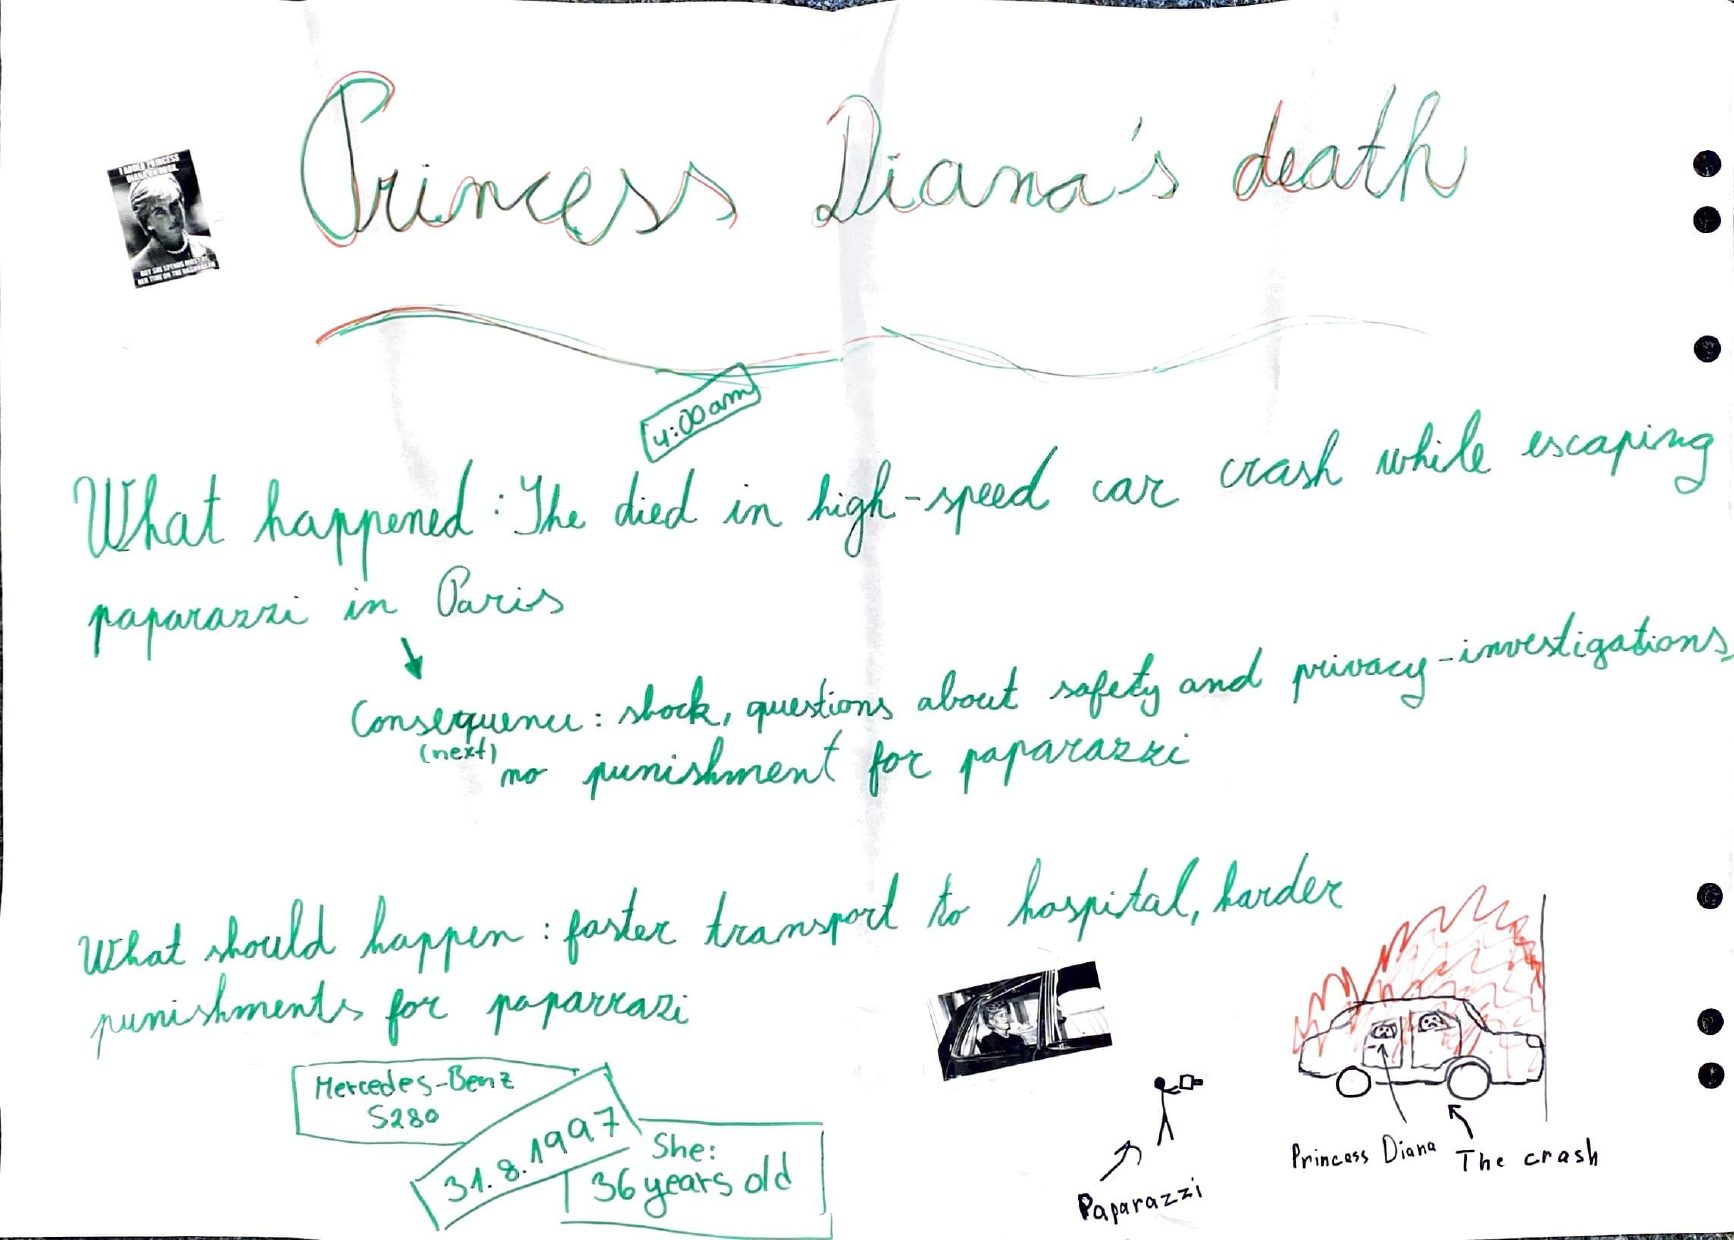 Princess Diana's death
4:00 am
What happened: The died in high-speed car crash while escaping
paparazzi in Paris
Consequence: shock, questions about safety and privacy - investigations,
(next)
no punishment for paparazzi
What should happen: faster transport to hospital, harder
punishments for paparrazi
Mercedes-Benz
S280
31.8.1997
She:
36 years old
Paparazzi
Princess Diana
The crash